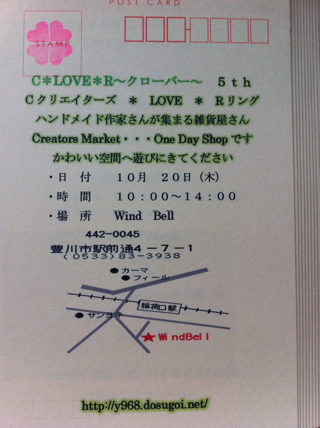 POST CARD
STAMP
C＊LOVE＊R～クローバー～　５ｔｈ
Cクリエイターズ　＊　LOVE　＊　Rリング
ハンドメイド作家さんが集まる雑貨屋さん
Creators Market・・・One Day Shop です
かわいい空間へ遊びにきてください
・日　付　　１０月　２０日（木）
・時　間　　１０：００～１４：００
・場　所　　Wind　Bell
442-0045
豊川市駅前通４－７－１
(０５３３)８３－３９３８
カーマ
フィール
稲荷口駅
サンヨネ
WindBell
http://y968.dosugoi.net/